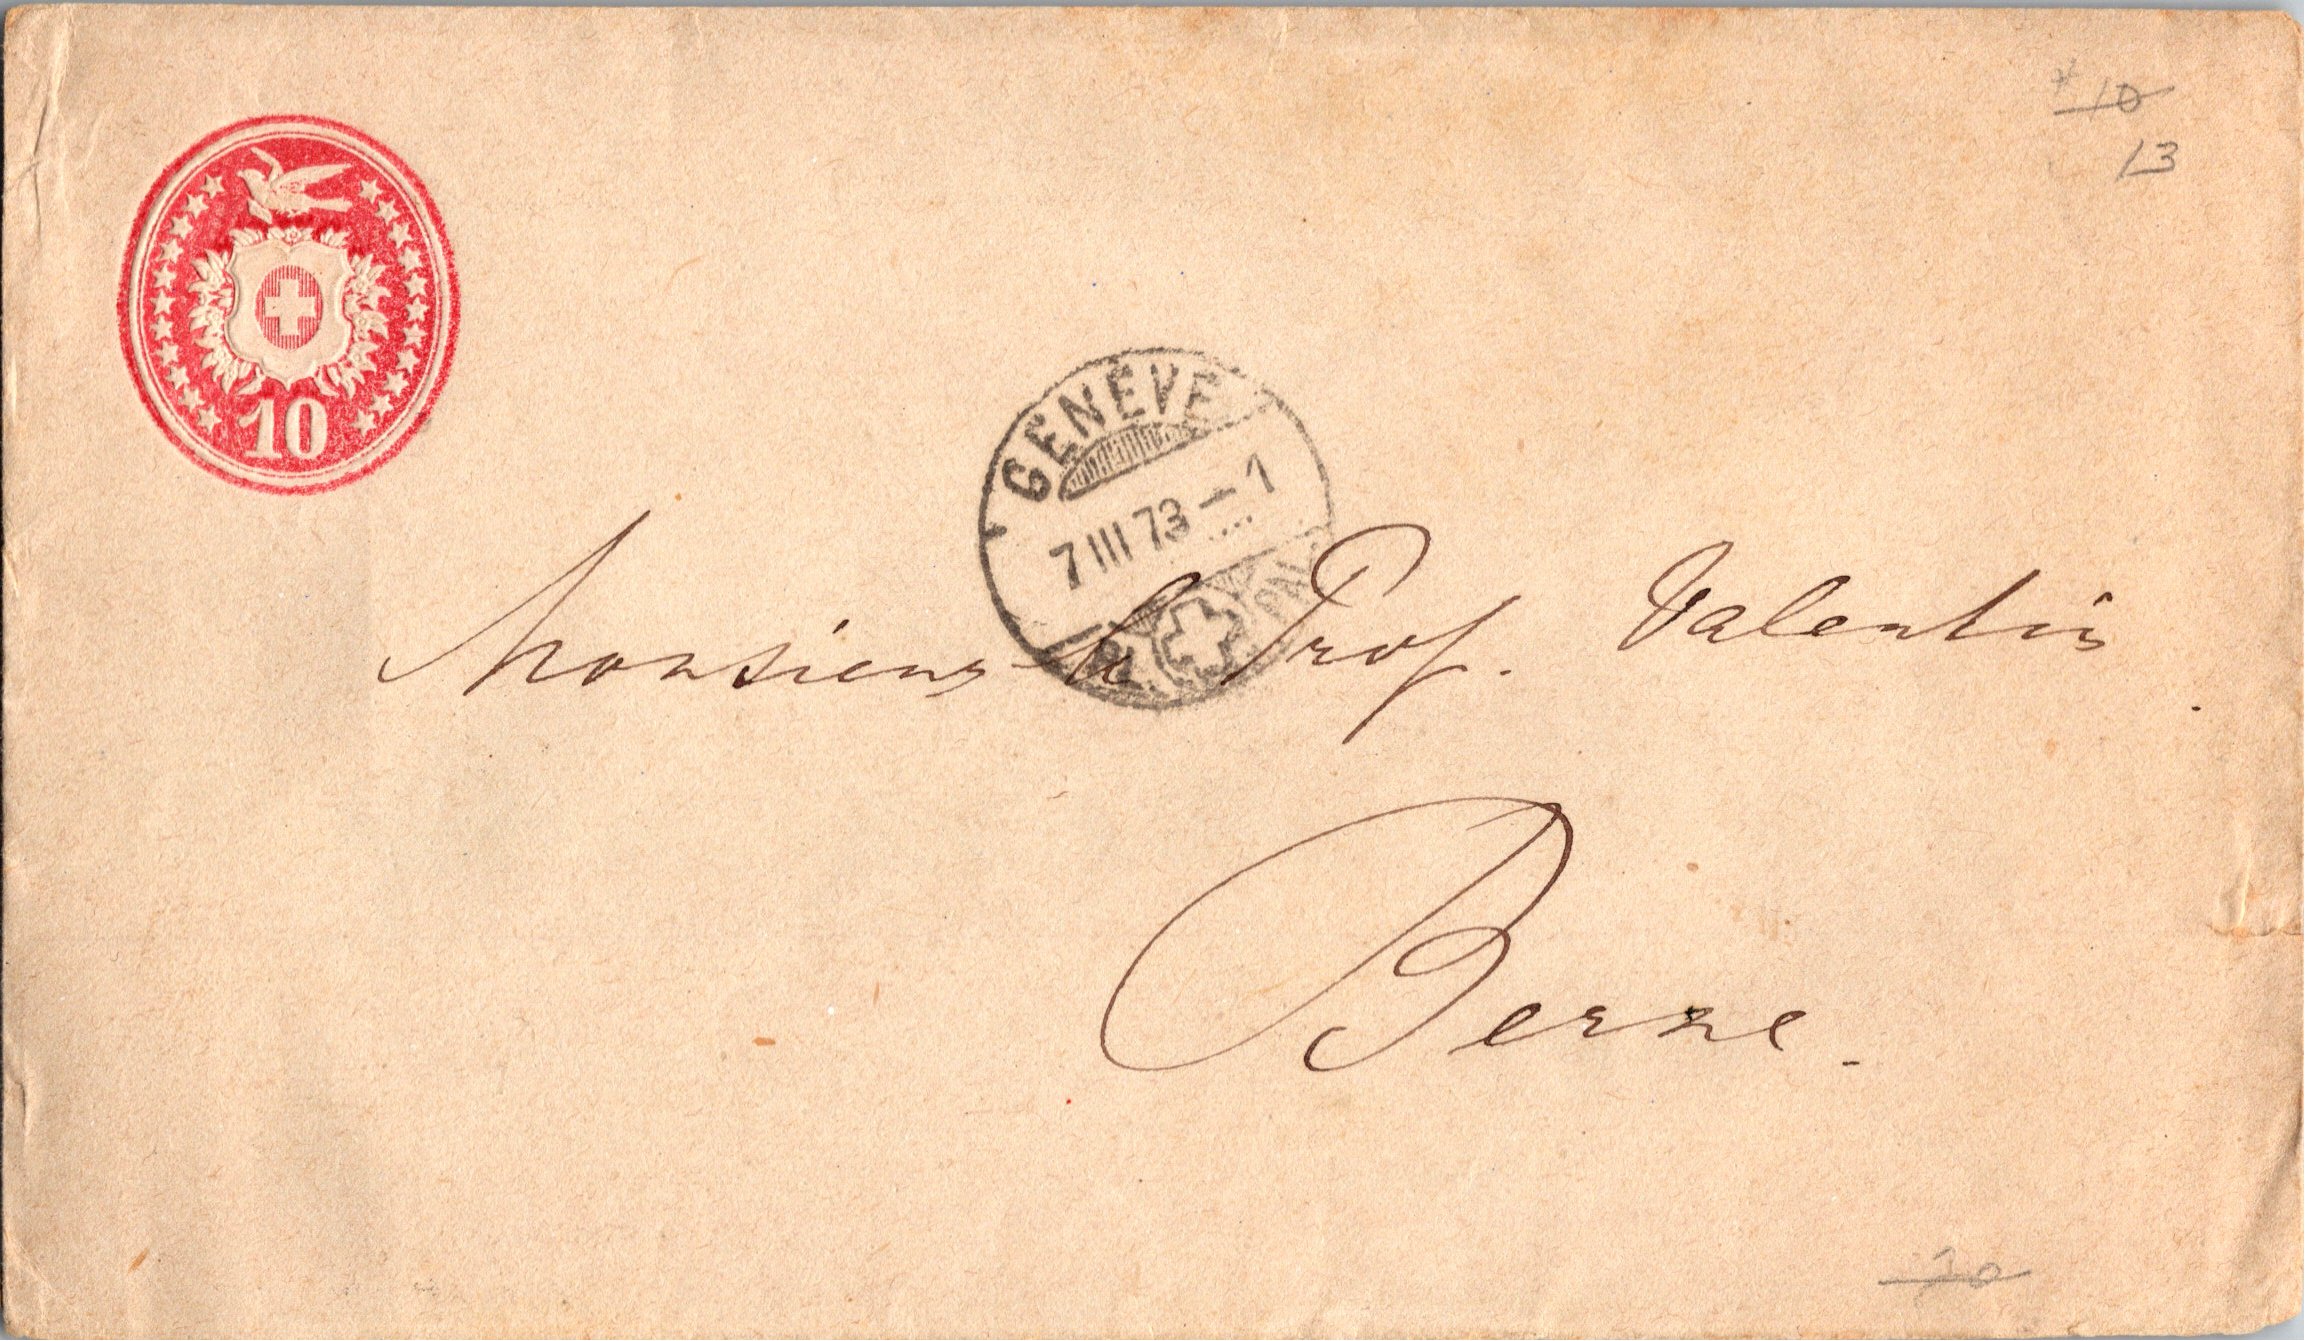 10
10
13
GENÈVE
7 III 73 – 1
Monsieur le Prof. Valentin
Berne.